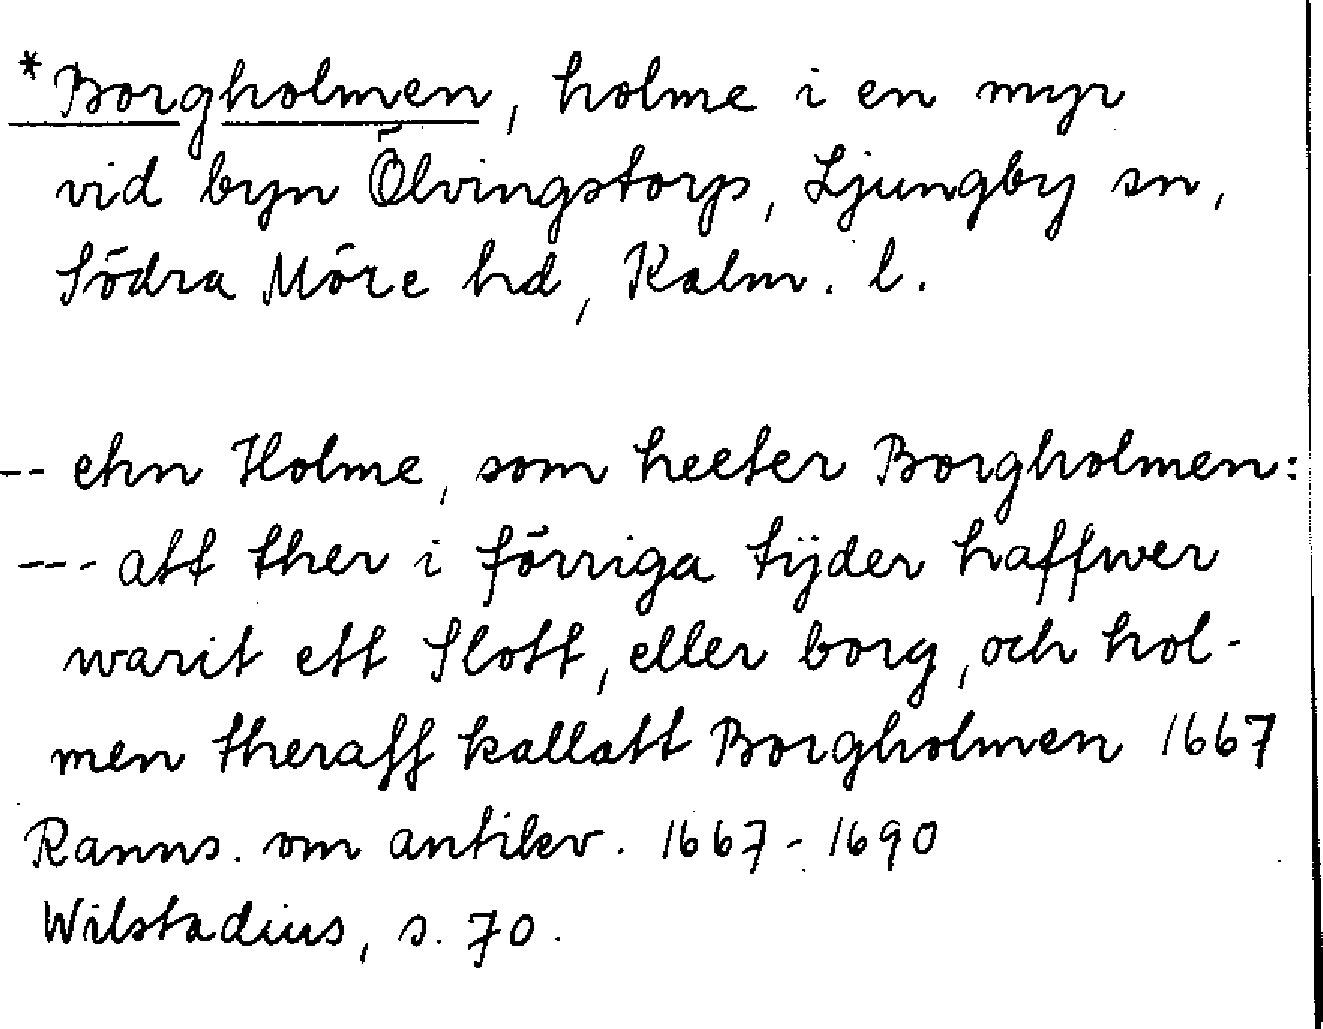 *Borgholmen, holme i en myr
vid byn Ölvingstorp, Ljungby sn,
Södra Möre hd, Kalm. l.
-- ehn Holme, som heeter Borgholmen:
--- att ther i förriga tijder haffwer
warit ett Slott, eller borg, och hol-
men theraff kallatt Borgholmen 1667
Ranns. om antikv. 1667-1690
Wilstadius, s. 70.